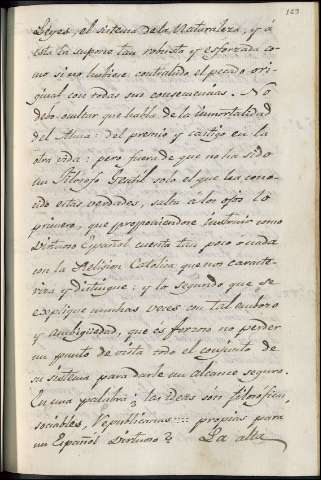 123
Leyes, el sistema de la Naturaleza, y á
esta la supone tan robusta y esforzada co-
mo si no hubiese contrahido el pecado ori-
ginal con todas sus consecuencias. No
debo ocultar que habla de la inmortalidad
del Alma: del premio y castigo en la
otra vida: pero fuera de que no ha sido
un Filosofo Gentil solo el que ha cono-
cido estas verdades, salta á los ojos lo
primero, que proponiendose instruir como
Virtuoso Español cuenta tan poco ó nada
con la Religion Catolica que nos caracte-
riza y distingue: y lo segundo que se
explique muchas veces con tal embozo
y ambigüedad, que es forzoso no perder
un punto de vista todo el conjunto de
su sistema para darle un alcance seguro.
En una palabra ¿las ideas són filosoficas,
sociables, Republicanas:::: propias para
un Español Virtuoso? La alta